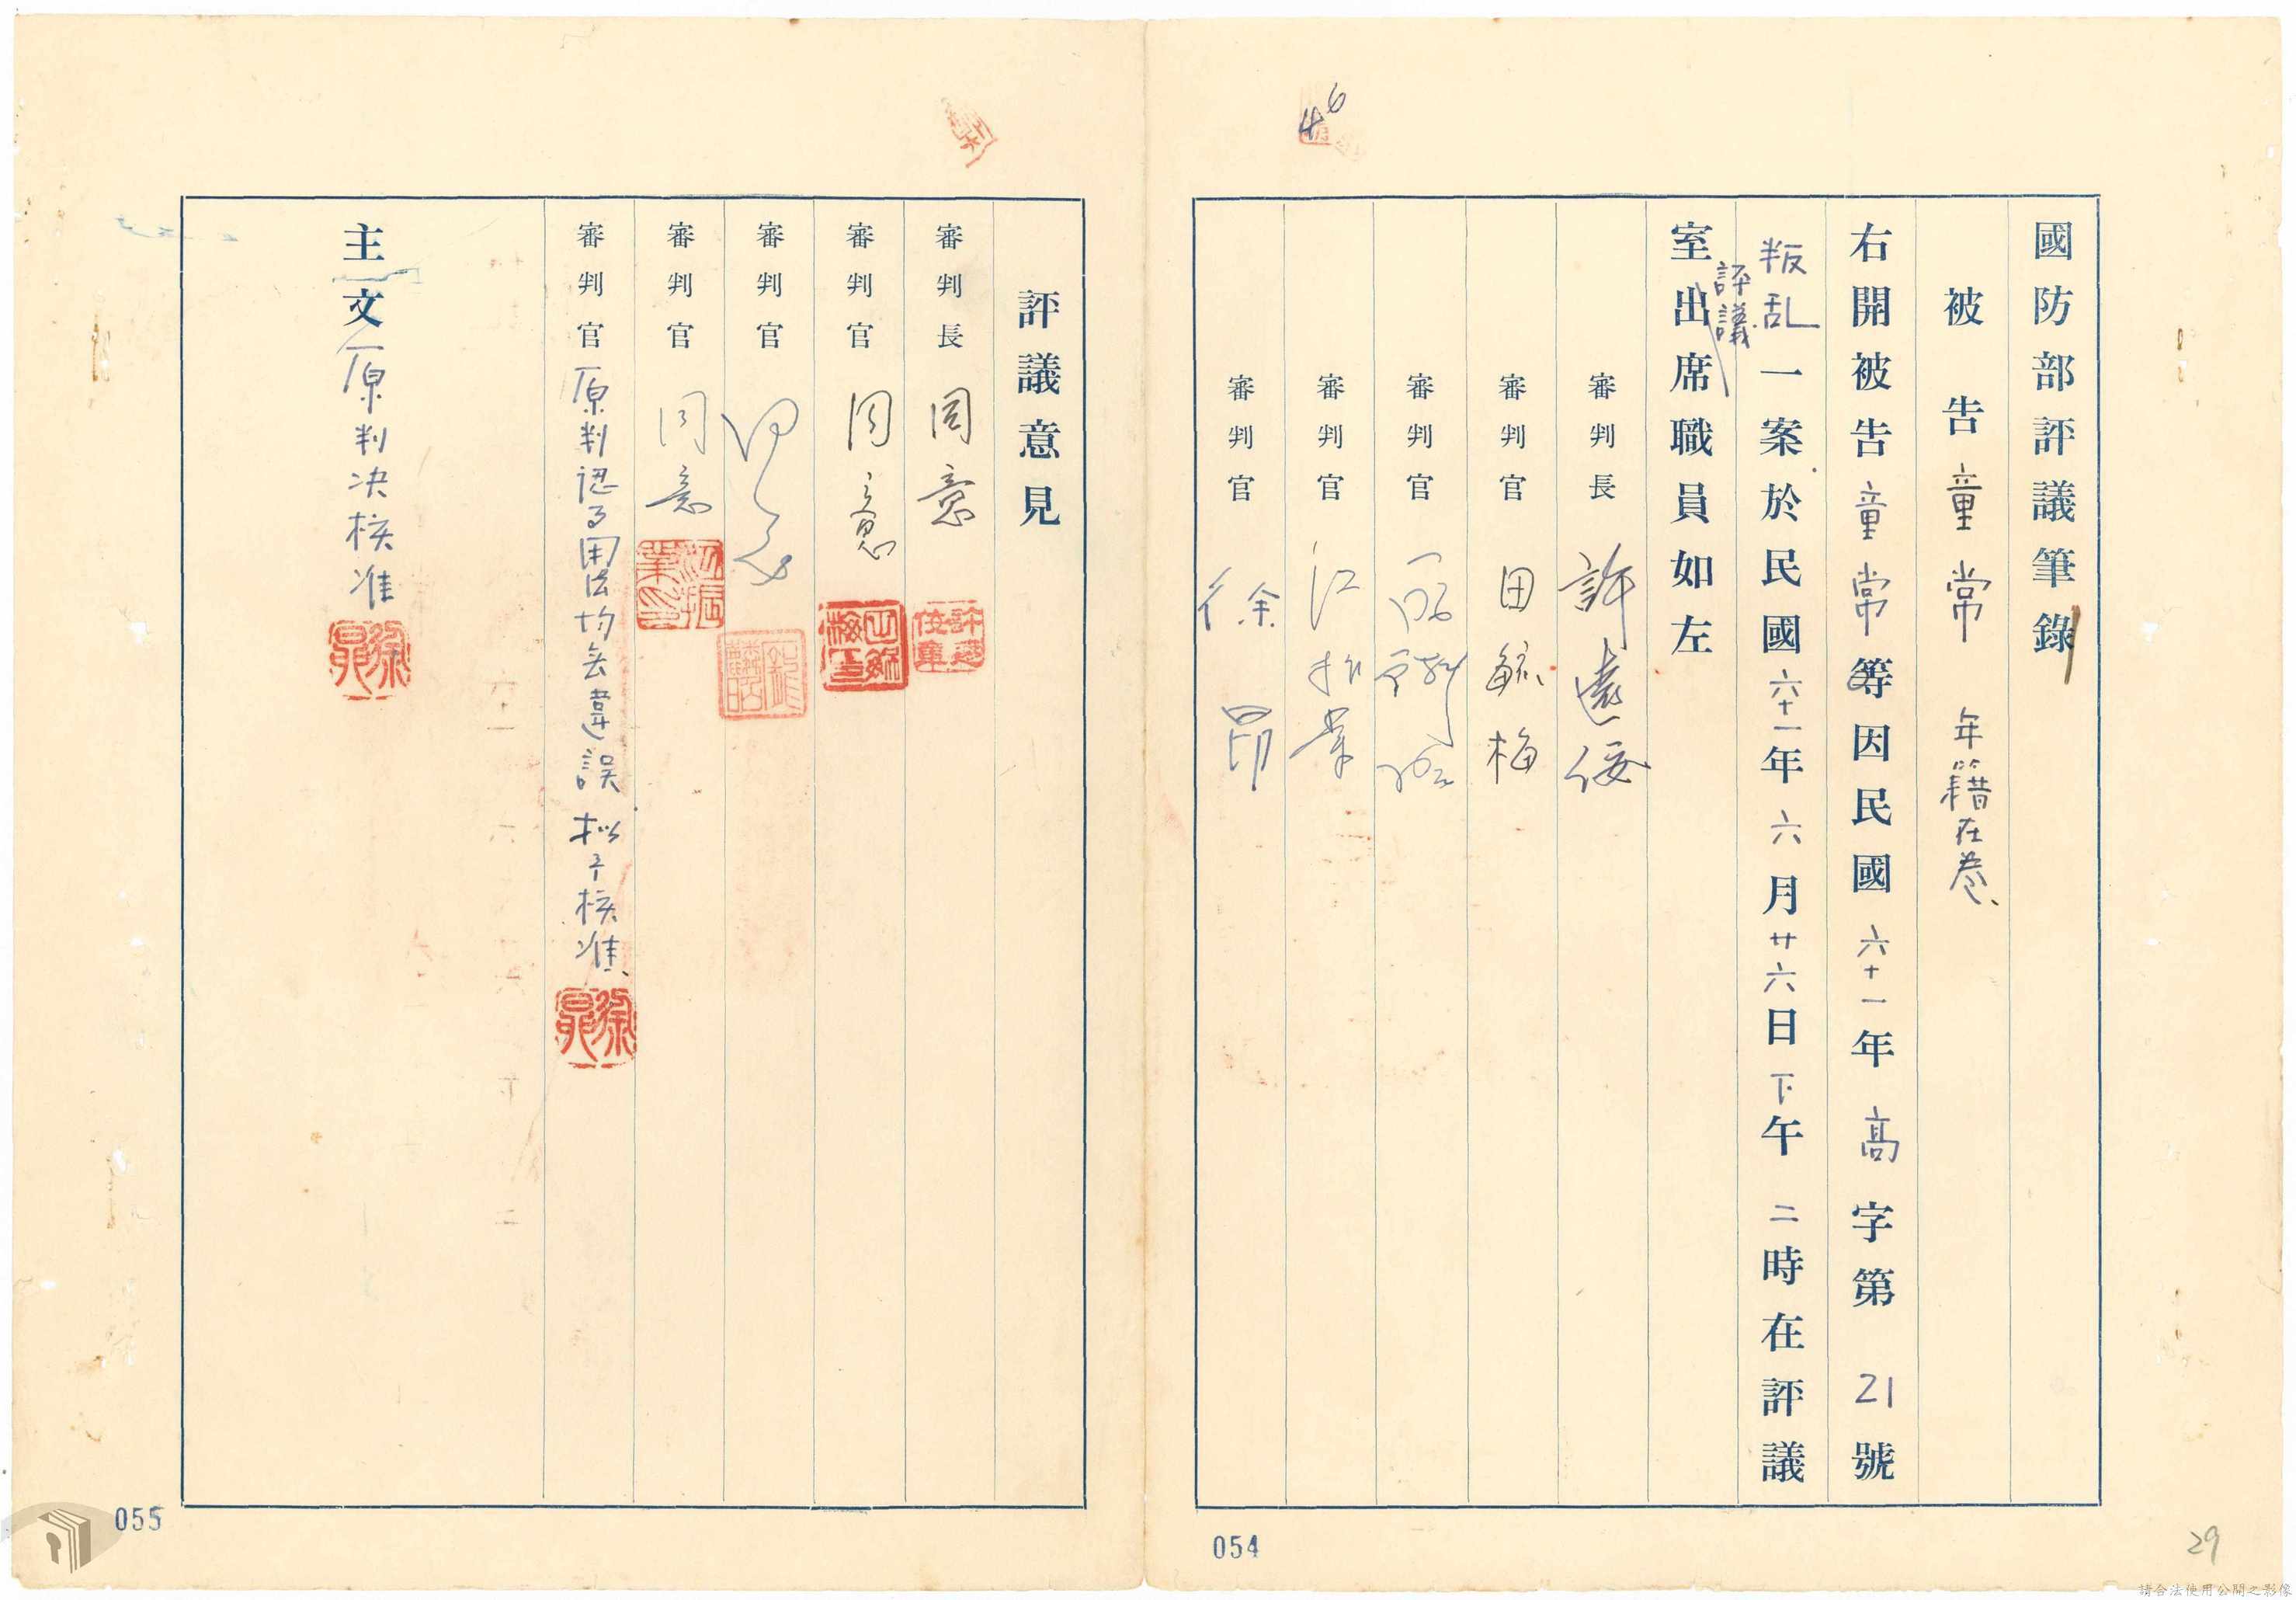 國防部評議筆錄
被告童常 年籍在卷、
右開被告童常等因民國六十一年高字第21號
叛乱一案於民國六十一年六月廿六日下午二時在評議
評議
室出席職員如左
審判長 許遠俀
審判官 田毓梅
審判官
審判官 江振業
審判官 徐昂
46
054
29
評議意見
審判長 同意
審判官 同意
審判官 同意
審判官 同意
審判官 原判認事用法均無違誤 拟予核准、
主文 原判決核准
055
請合法使用公開之影像